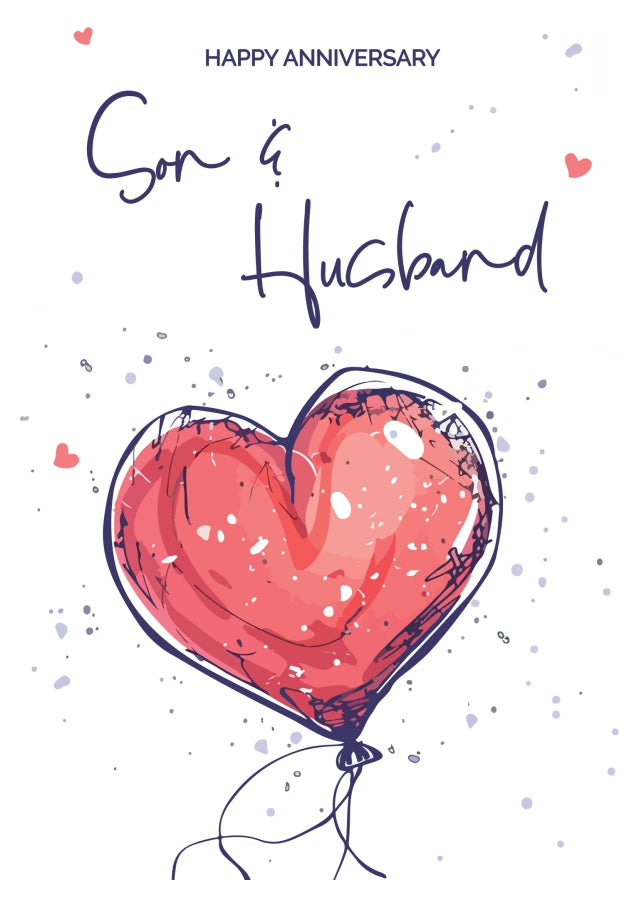 HAPPY ANNIVERSARY
Son &
Husband